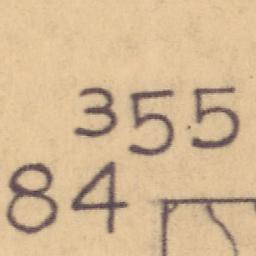 355
84